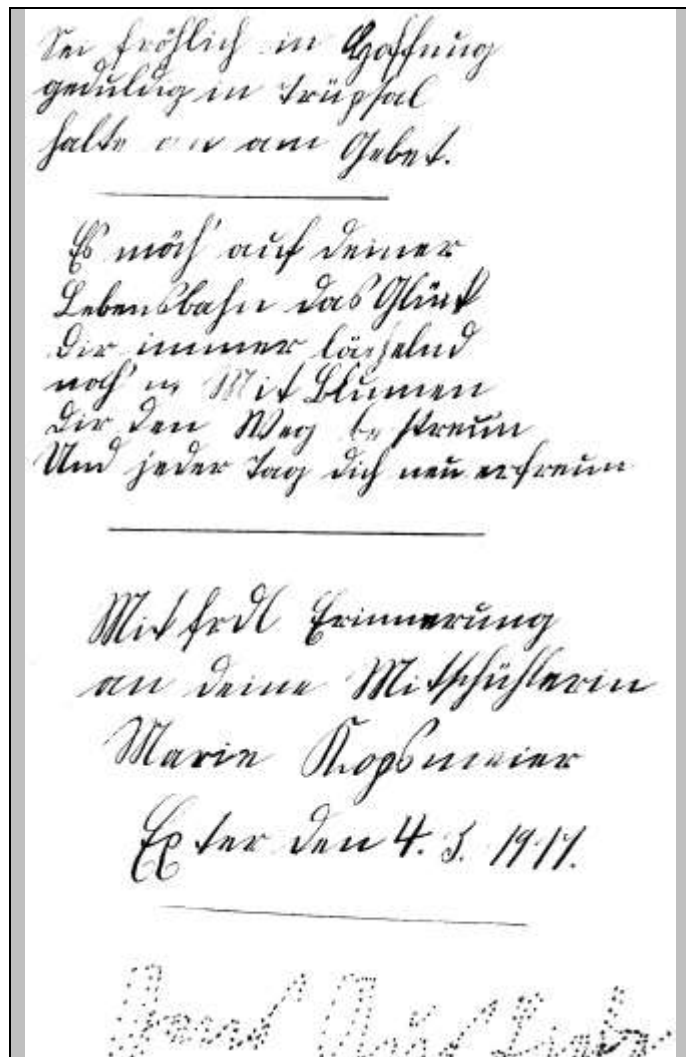 Sei fröhlich in Hoffnung
geduldig in Trüpsal
halte an am Gebet.
Es mög' auf deiner
Lebensbahn das Glück
Dir immer lächelnd
nah'n Mit Blumen
Dir den Weg bestreun
Und jeder Tag dich neu erfreun
Mit frdl Erinnerung
an deine Mitschühlerin
Marie Kopsmeier
Exter den 4. 3. 1917.